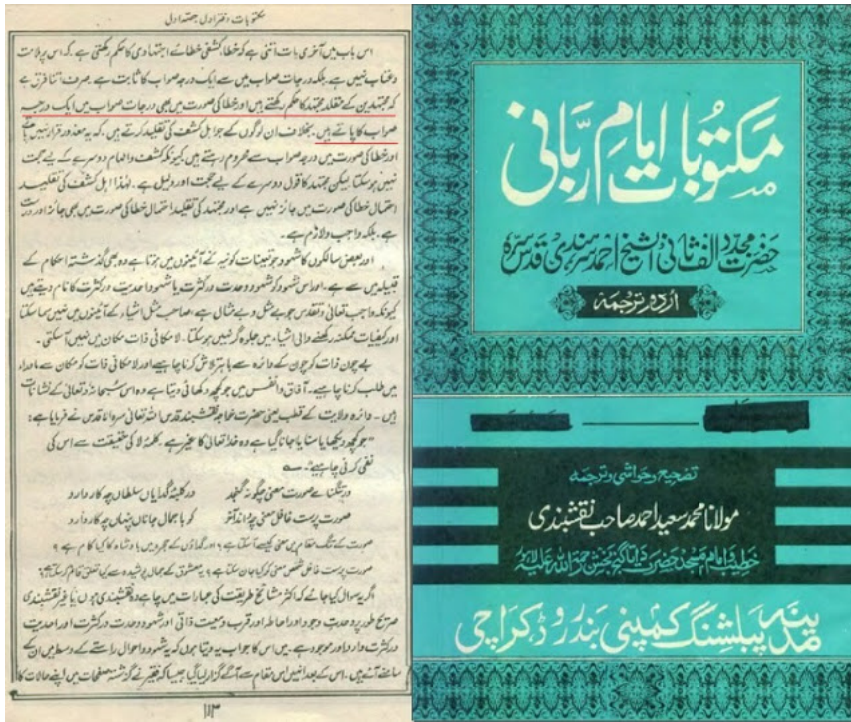 مکتوبات امام ربانی
حضرت مجدد الف ثانی الشیخ احمد سرہندی قدس سرہ
اردو ترجمہ
تصحیح وحواشی وترجمہ
مولانا محمد سعید احمد صاحب نقشبندی
خطیب امام مسجد حضرت داتا گنج بخش رحمۃ اللہ علیہ لاہور
مدینہ پبلشنگ کمپنی بندر روڈ کراچی
مکتوبات دفتر اول حصہ اول
اس باب میں آخری بات اتنی ہے کہ خطا کشفی خطائے اجتہادی کا حکم رکھتی ہے۔ کہ اس پر ملامت
وعتاب نہیں ہے بلکہ درجات صواب میں سے ایک درجہ صواب کا ثابت ہے۔ صرف اتنا فرق ہے
کہ مجتہدین کے مقلد مجتہد کا حکم رکھتے ہیں اور خطا کی صورت میں بھی درجات صواب میں ایک درجہ
صواب کا پاتے ہیں۔ بخلاف ان لوگوں کے جو اہل کشف کی تقلید کرتے ہیں۔ کہ یہ معذور قرار نہیں پاتے
اور خطا کی صورت میں درجہ صواب سے محروم رہتے ہیں۔ کیونکہ کشف والہام دوسرے کے لیے حجت
نہیں ہو سکتا لیکن مجتہد کا قول دوسرے کے لیے حجت اور دلیل ہے۔ لہٰذا اہل کشف کی تقلید
احتمال خطا کی صورت میں جائز نہیں ہے اور مجتہد کی تقلید احتمال خطا کی صورت میں بھی جائز اور درست
ہے۔ بلکہ واجب ولازم ہے۔
اور بعض سالکوں کا شہود جو تعینات کونیہ کے آئینوں میں ہوتا ہے وہ بھی گذشتہ احکام کے
قبیلہ میں سے ہے۔ اور اس شہود کو شہود وحدت در کثرت یا شہود احدیت در کثرت کا نام دیتے ہیں
کیونکہ واجب تعالیٰ وتقدس جو بے مثل و بے مثال ہے، صاحب مثل اشیاء کے آئینوں میں نہیں سما سکتا
اور کیفیات ممکنہ رکھنے والی اشیاء میں جلوہ گر نہیں ہو سکتا۔ لامکانی ذات مکان میں نہیں آسکتی۔
بے چون ذات کو چون کے دائرہ سے باہر تلاش کرنا چاہیے اور لامکانی ذات کو مکان سے ماوراء
میں طلب کرنا چاہیے۔ آفاق وانفس میں جو کچھ دکھائی دیتا ہے وہ اس سبحانہ وتعالیٰ کے نشانات
ہیں۔ دائرہ ولایت کے قطب یعنی حضرت خواجہ نقشبند قدس اللہ تعالیٰ سرہ الاقدس نے فرمایا ہے:
"جو کچھ دیکھا یا سنا یا جانا گیا ہے وہ خدا تعالیٰ کا غیر ہے۔ کلمۂ لا کی حقیقت سے اس کی
نفی کرنی چاہیے"۔
در تنگنائے صورت معنی چگونہ گنجد در کلبۂ گدایاں سلطاں چہ کار دارد
صورت پرست غافل معنی چہ داند آخر کو با جمال جاناں پنہاں چہ کار دارد
صورت کے تنگ مقام میں معنی کیسے آ سکتا ہے؟ اور گداؤں کے حجرہ میں بادشاہ کا کیا کام ہے؟
صورت پرست غافل شخص معنی کو کیا جان سکتا ہے؟ یہ معشوق کے جمال پوشیدہ سے کیا تعلق قائم کر سکتا ہے؟
اگر یہ سوال کیا جائے کہ اکثر مشائخ طریقت کی عبارات میں چاہے وہ نقشبندی ہوں یا غیر نقشبندی
صریح طور پر وحدت وجود اور احاطہ اور قرب ومعیت ذاتی اور شہود وحدت در کثرت اور احدیت
در کثرت وارد اور موجود ہے۔ میں اس کا جواب یہ دیتا ہوں کہ یہ شہود واحوال راستے کے وسط میں ان کے
سامنے آئے ہیں۔ اس کے بعد انہیں اس مقام سے آگے گزار لیا گیا جیسا کہ فقیر نے گزشتہ صفحات میں اپنے حالات کا
۱۱۳